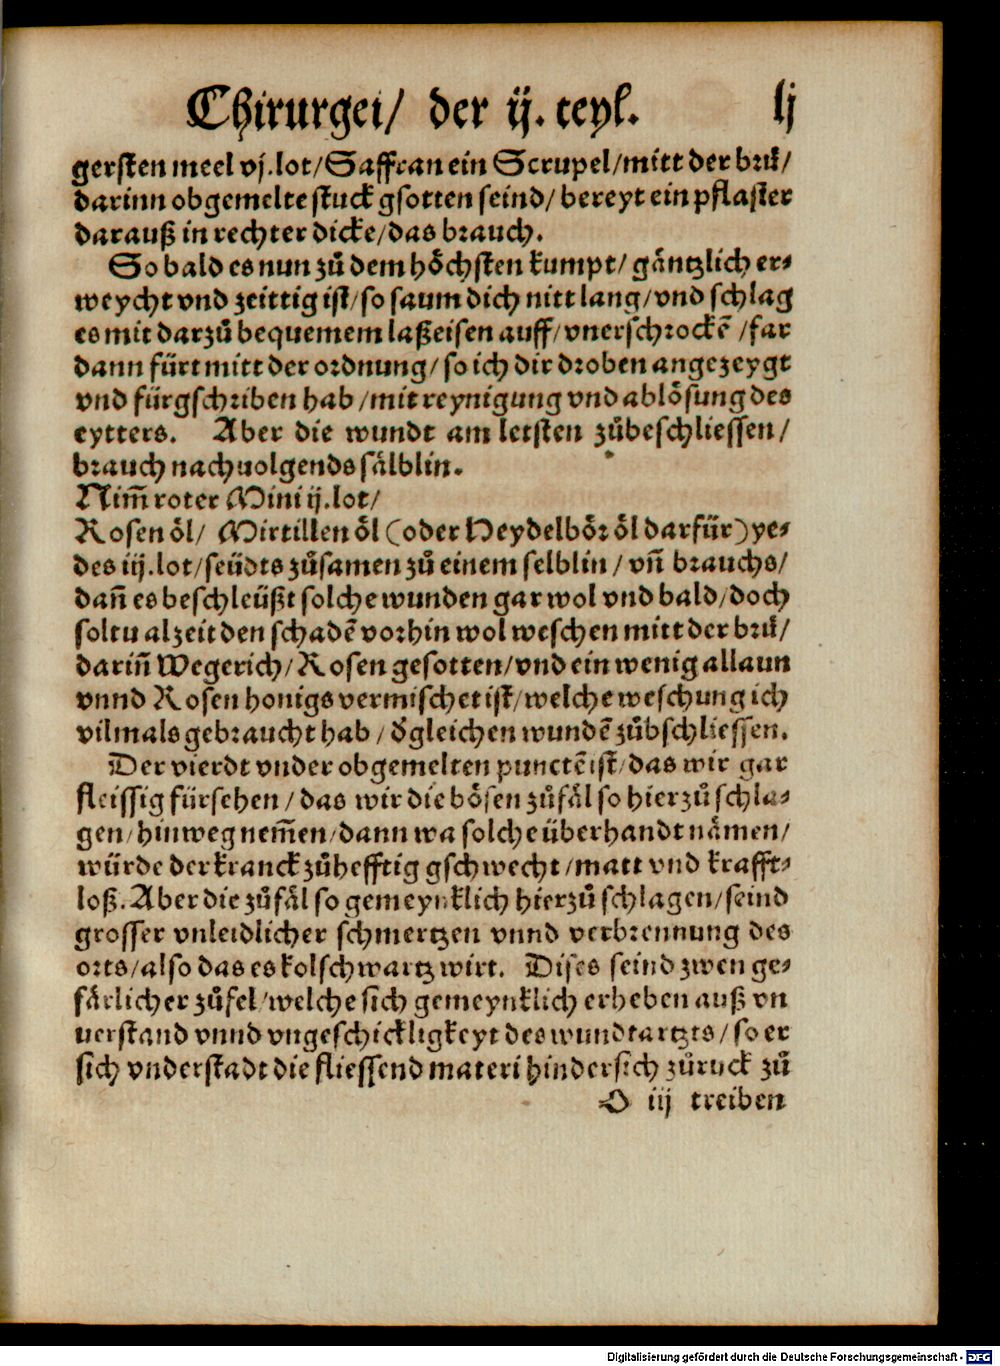 Chirurgei/ der ij. teyl. lj
gersten meel vj.lot/Saffran ein Scrupel/mitt der brů/
darinn obgemelte stuck gsotten seind/ bereyt ein pflaster
darauß in rechter dicke/das brauch.
So bald es nun zů dem höchsten kumpt/ gäntzlich er-
weycht vnd zeittig ist/so saum dich nitt lang/vnd schlag
es mit darzů bequemem laßeisen auff/vnerschrockē /far
dann fürt mitt der ordnung/ so ich dir droben angezeygt
vnd fürgschriben hab/mit reynigung vnd ablösung des
eytters. Aber die wundt am letsten zůbeschliessen/
brauch nachuolgends sälblin.
Nim̄ roter Mini ij.lot/
Rosen öl/ Mirtillen öl (oder Heydelbör öl darfür) ye-
des iij.lot/seüdts zůsamen zů einem selblin/ vn̄ brauchs/
dan̄ es beschleüßt solche wunden gar wol vnd bald/doch
soltu alzeit den schadē vorhin wol weschen mitt der brů/
darin̄ Wegerich/Rosen gesotten/vnd ein wenig allaun
vnnd Rosen honigs vermischet ist/welche weschung ich
vilmals gebraucht hab/ d̓gleichen wundē zůbschliessen.
Der vierdt vnder obgemelten punctē ist/das wir gar
fleissig fürsehen/das wir die bösen zůfäl so hierzů schla-
gen/hinweg nem̄en/dann wa solche überhandt nämen/
würde der kranck zůhefftig gschwecht/matt vnd krafft-
loß. Aber die zůfäl so gemeynklich hierzů schlagen/seind
grosser vnleidlicher schmertzen vnnd verbrennung des
orts/also das es kolschwartz wirt. Dises seind zwen ge-
färlicher zůfel/welche sich gemeynklich erheben auß vn
uerstand vnnd vngeschickligkeyt des wundtartzts/so er
sich vnderstadt die fliessend materi hindersich zůruck zů
O iij treiben
Digitalisierung gefördert durch die Deutsche Forschungsgemeinschaft - DFG